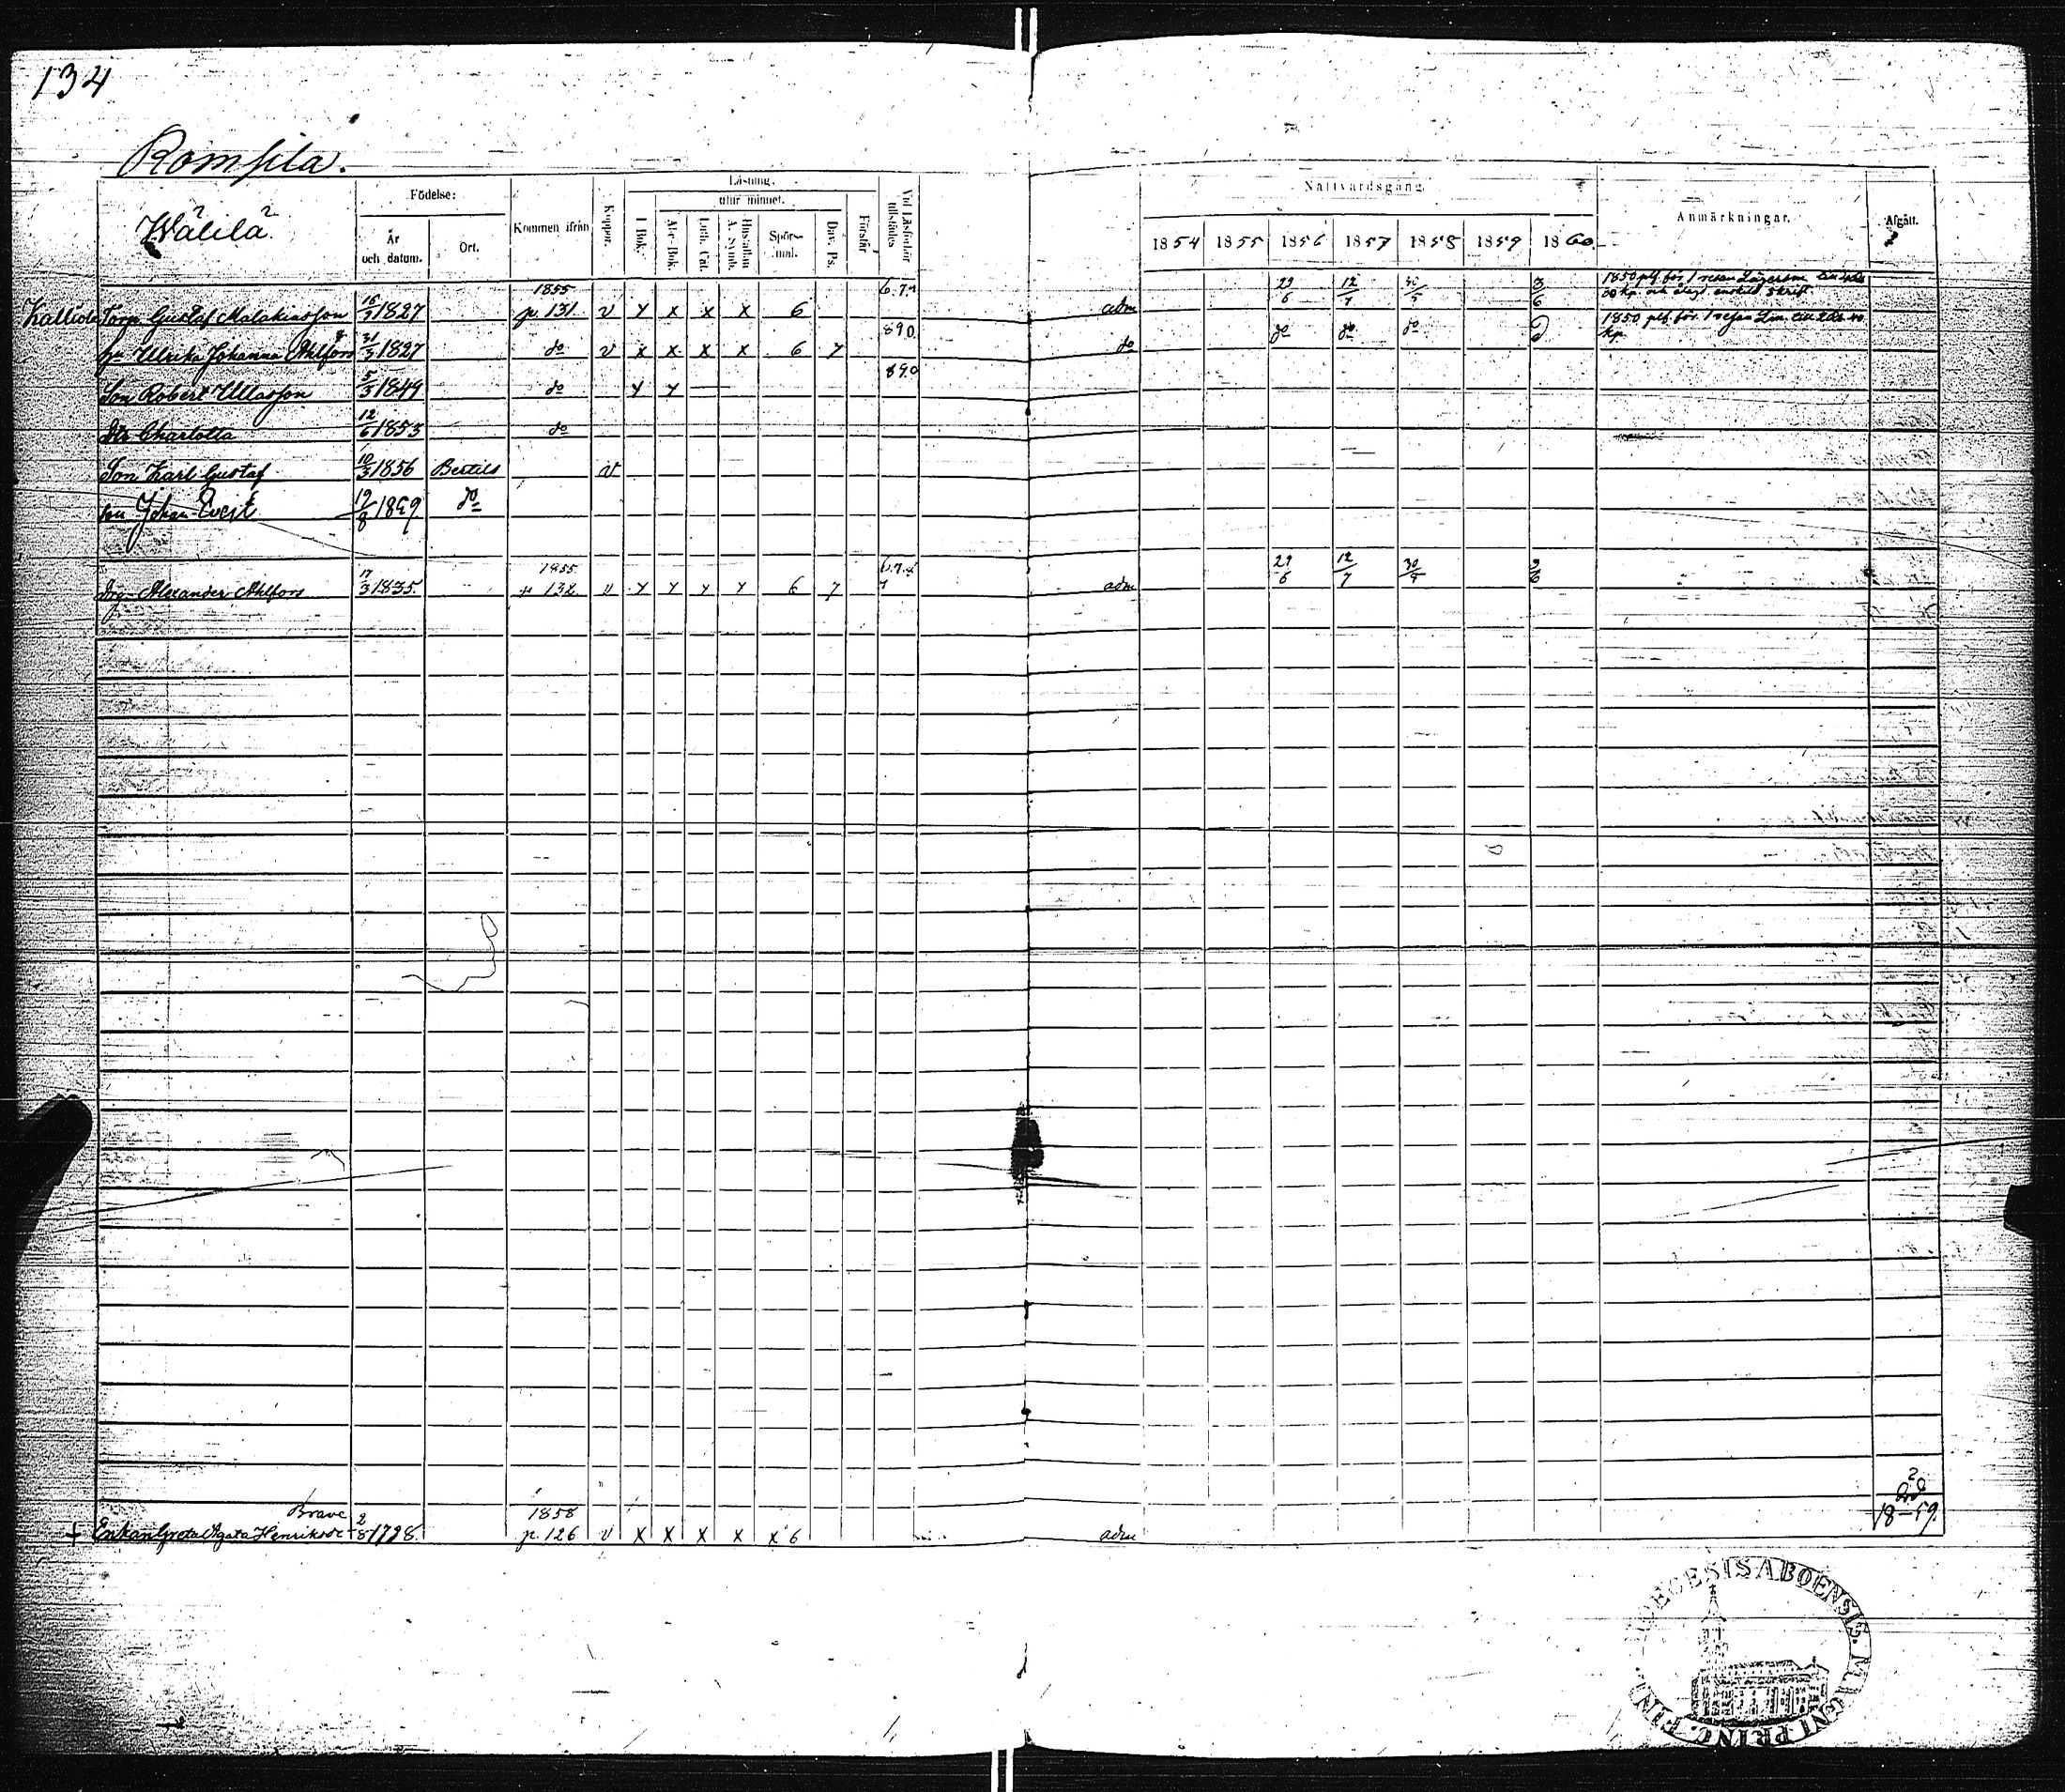 134
Romsila.
Wälilä.
Födelse:
År och datum.
Ort.
Kommen ifrån
Koppor.
Läsning.
I Bok.
utur minnet.
Abc-Bok.
Luth. Cat.
Hustaflan A. Symb.
Spörsmål.
Dav. Ps.
Förstår
Vid Läsförhör tillstädes
Nattvardsgång.
1854 1855 1856 1857 1858 1859 1860.
Anmärkningar.
Afgått.
Torp. Gustaf Malakiasson 16/3 1827 1855 p. 131. v x x x x 6 6.7.9 adm 29/6 12/7 30/5 3/6
hu Ulrika Johanna Ahlfors 21/3 1827 do v x x x x 6 y 890. do do do do
1850 plf. för 1 resan
Son Robert Ullasson 5/3 1849 do y y 890
Dtr Charlotta 12/6 1853 do
Son Karl Gustaf 10/3 1856 Bertils v
son Johan Evert 19/8 1859 do
Drg Alexander Ahlfors 17/3 1835. 1855. p 132. v y y y y 6 y 6.7.8 adm 29/6 12/7 30/5 3/6
† Enkan Greta Agata Henriksdr Brave 2/8 1798. 1858 p. 126 v x x x x x 6 adm 18-59.
DIOECESIS ABOENSIS. MAGNI PRINC. FIN.